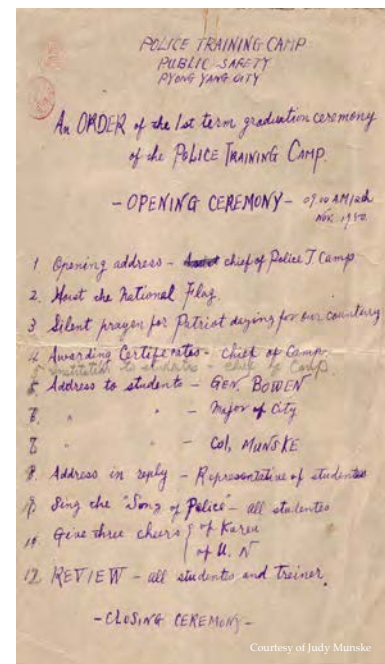 POLICE TRAINING CAMP
PUBLIC SAFETY
PYONG YANG CITY
An ORDER of the 1st term graduation ceremony
of the POLICE TRAINING CAMP.
- OPENING CEREMONY - 09.00 AM
Nov. 1950
1. Opening address - chief of Police T. Camp
2. Hoist the National Flag.
3. Silent prayer for Patriot dying for our country
4. Awarding Certificates - chief of Camp.
5. to students - chief of Camp.
Address to students - GEN. BOWEN
" " - Major of City
" " - Col, MUNSKE
Address in reply - Representative of studentes
Sing the "Song of Police" - all studentes
11. Give three cheers } of Korea
of U. N
12. REVIEW - all studentes and treiner.
- CLOSING CEREMONY -
Courtesy of Judy Munske